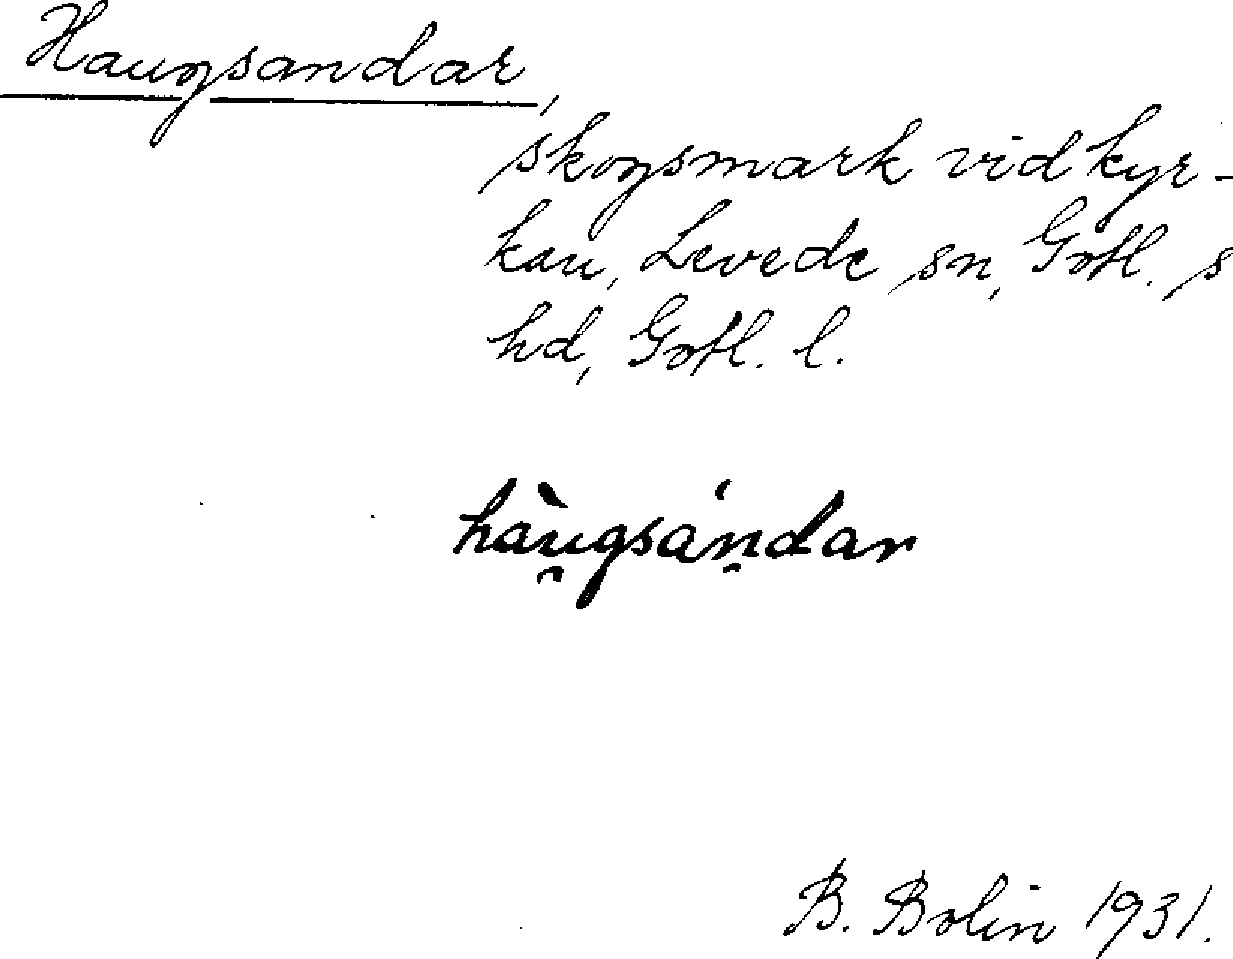 Haugsandar,
skogsmark vid kyr-
kan, Levede sn, Gotl. s
hd, Gotl. l.
hàu̯gsán̥dar
B. Bolin 1931.